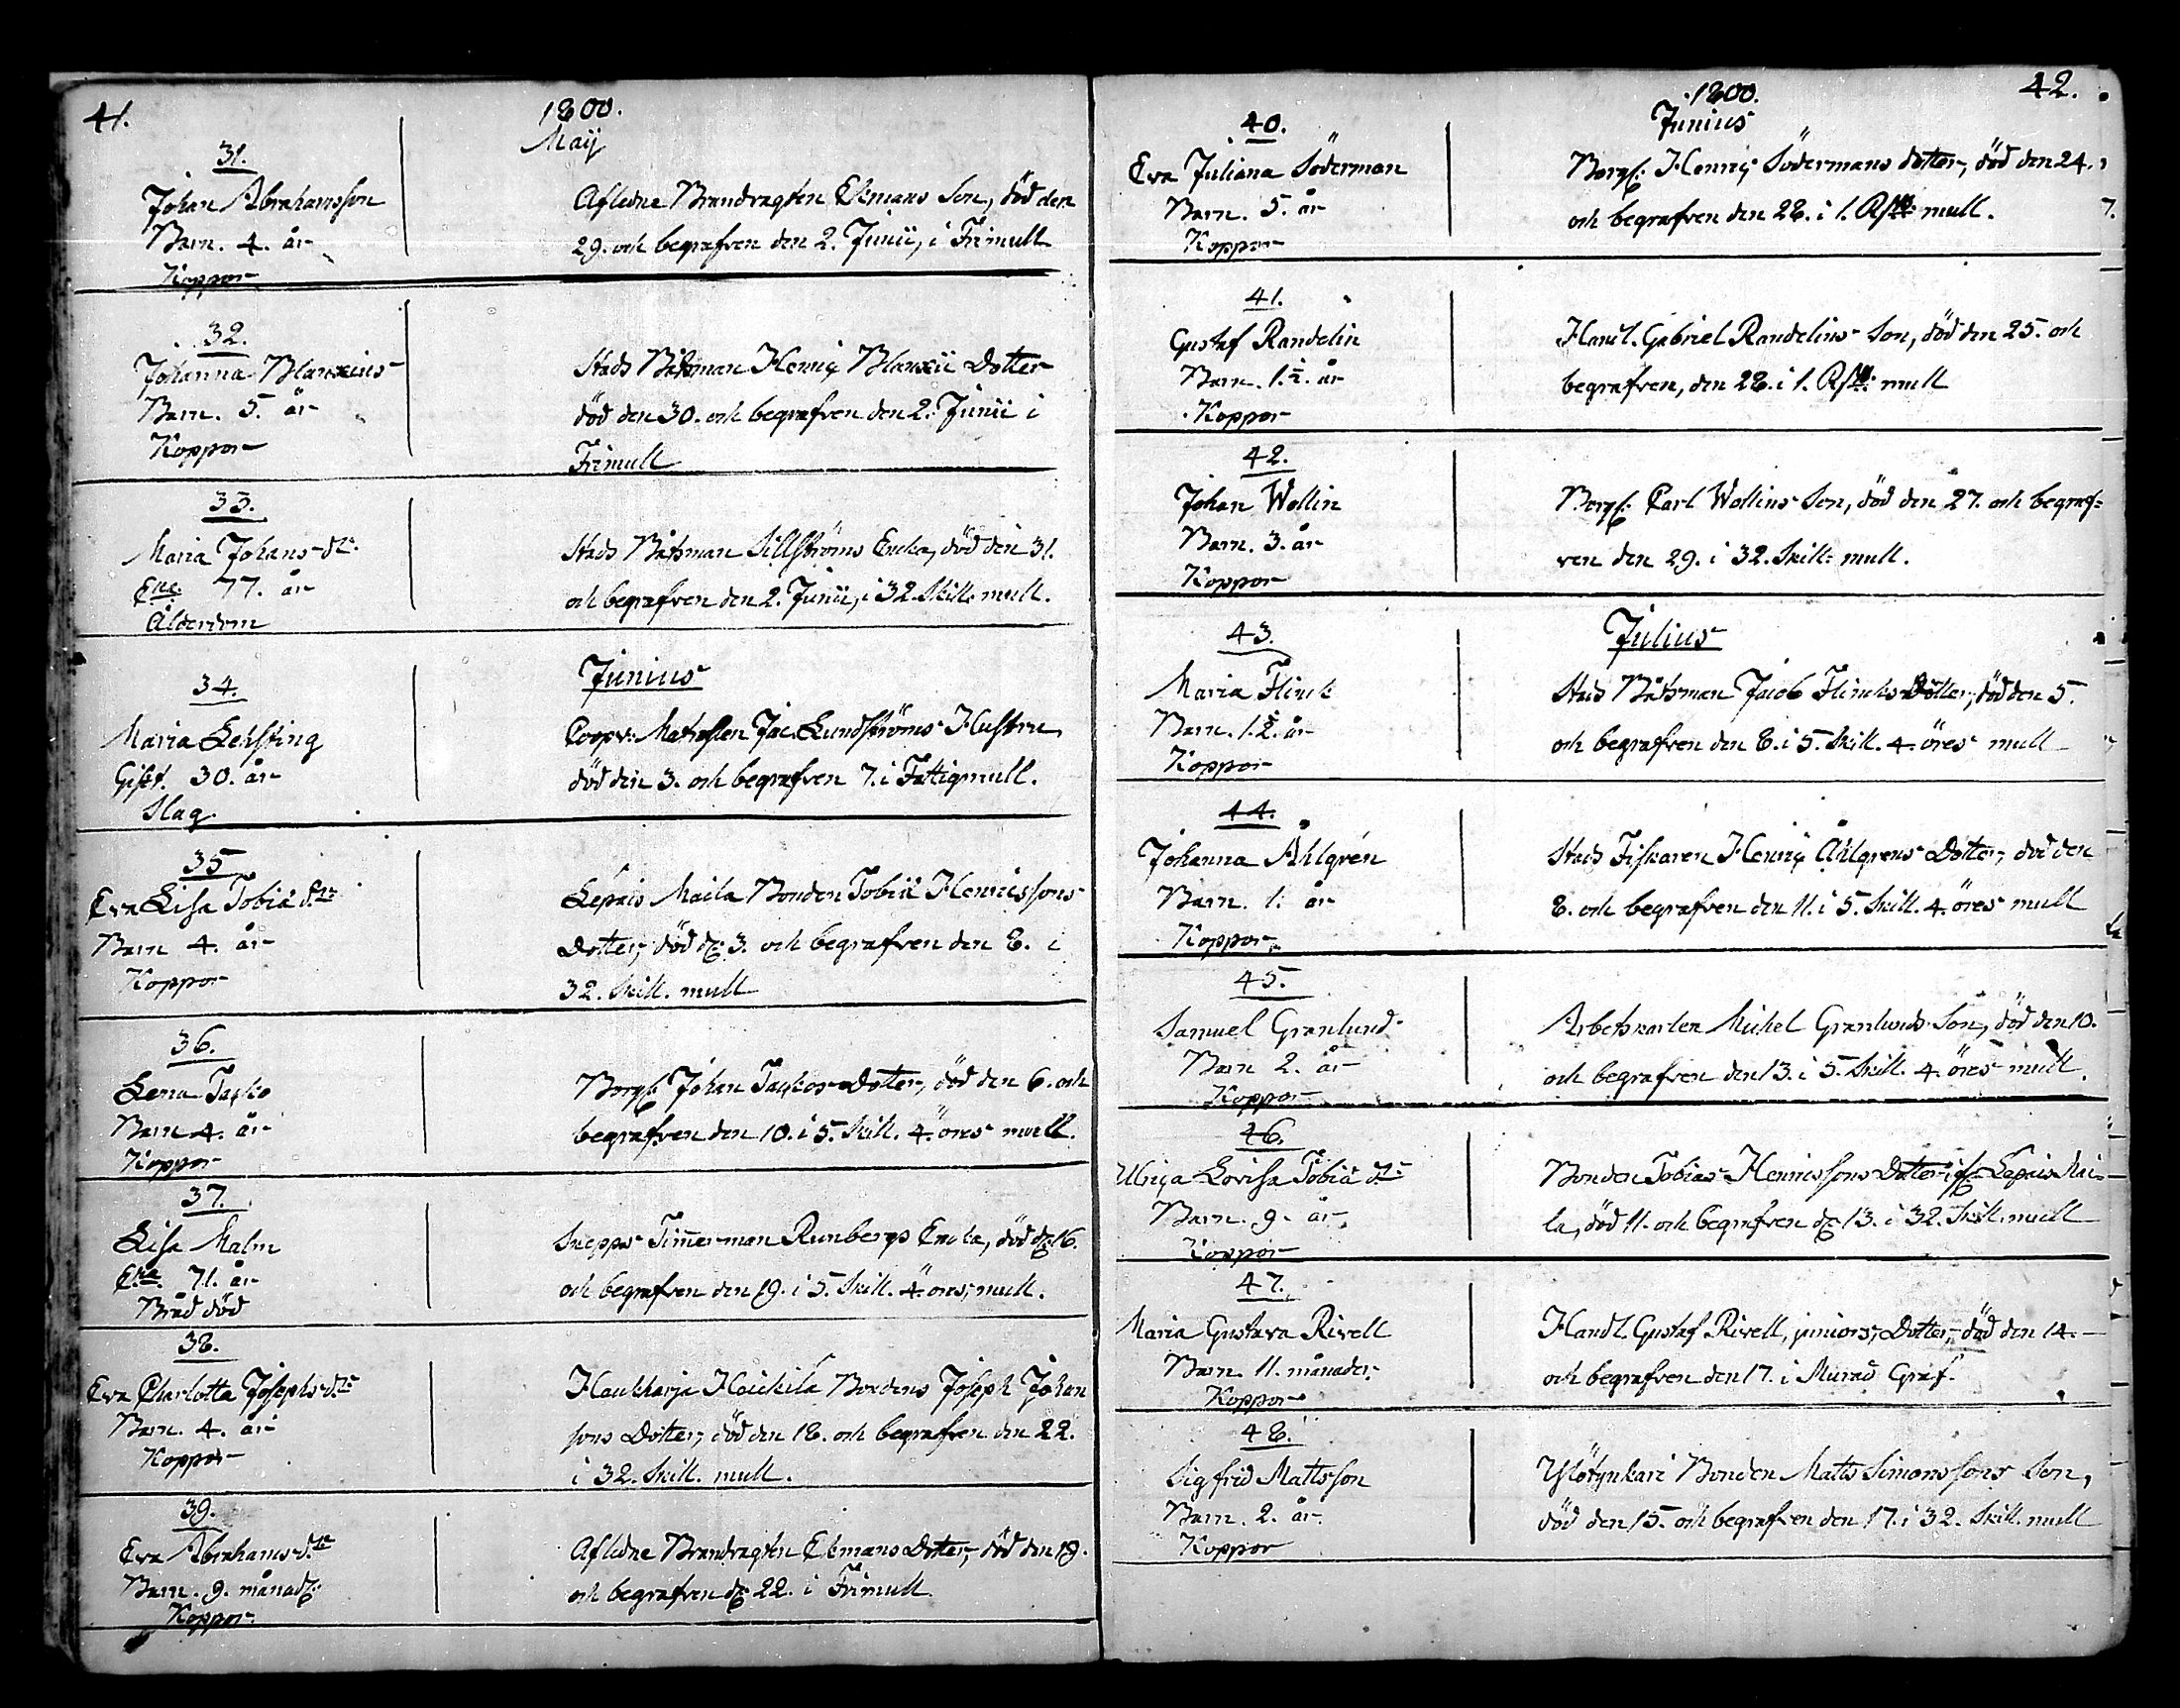 41.
1800.
Maij
31.
Johan Abrahamsson
Barn. 4. år
Koppor
Afledne Brandvagten Ekmans Son, död den
29. och begrafven den 2. Junii, i Frimull
32.
Johanna Blanxius
Barn. 5. år
Koppor
Stads Båtsman Henric Blanxii Dotter
död den 30. och begrafven den 2. Junii i
Frimull
33.
Maria Johans dr.
Eka. 77. år
Ålderdom
Stads Båtsman Sillströms Encka, död den 31.
och begrafven den 2. Junii, i 32. Skill. mull.
Junius
34.
Maria Lehsting
Gift. 30. år
Slag.
Coopv: Matrosen Jac. Lundströms Hustru,
död den 3. och begrafven 7. i Fattigmull.
35
Eva Lisa Tobiæ dr.
Barn 4. år
Koppor
Lepais Maila Bonden Tobiæ Henricssons
Dotter, död d. 3. och begrafven den 8. i
32. Skill. mull
36.
Lena
Barn 4. år
Koppor
Borg: Johan Dotter, död den 6. och
begrafven den 10. i 5. Skill. 4. öres mull.
37.
Lisa Malm
Eka. 71. år
Bråd död
Skepps Timmerman Runbergs Encka, död d. 16.
och begrafven den 19. i 5. Skill. 4. öres, mull.
38.
Eva Charlotta Josephs dr.
Barn. 4. år
Koppor
Haukharja Heickilä Bondens Joseph Johan
sons Dotter, död den 18. och begrafven den 22.
i 32. Skill. mull.
39.
Eva Abrahams dr.
Barn. 9. månad:
Koppor
Afledne Brandvagten Ekmans Dotter, död den 19.
och begrafven d. 22. i Frimull
42.
1800.
Junius
40.
Eva Juliana Söderman
Barn. 5. år
Koppor
Borg: Henric Södermans dotter, död den 24.
och begrafven den 28. i 1. R mull.
41.
Gustaf Randelin
Barn. 1.½. år
Koppor
Handl. Gabriel Randelins Son, död den 25. och
begrafven, den 28. i 1. R mull
42.
Johan Wollin
Barn. 3. år
Koppor
Borg: Carl Wollins Son, död den 27. och begraf=
ven den 29. i 32. Skill: mull.
Julius
43.
Maria Flinck
Barn. 1.½. år
Koppor
Stads Båtsman Jacob Flincks Dotter, död den 5.
och begrafven den 8. i 5. Skill. 4. öres mull
44.
Johanna Åhlgrén
Barn. 1. år
Koppor
Stads Fiskaren Henric Åhlgrens Dotter, död den
8. och begrafven den 11. i 5. Skill. 4. öres mull
45.
Samuel Granlund
Barn 2. år
Koppor
Arbetskarlen Michel Granlunds Son, död den 10.
och begrafven den 13. i 5. Skill. 4. öres mull.
46.
Ulrica Lovisa Tobiæ dr.
Barn. 9. år
Koppor
Bonden Tobias Henricssons Dotter ifr. Lepais Mai-
la, död 11. och begrafven d. 13. i 32. Skill. mull
47.
Maria Gustava Rivell
Barn. 11. månader
Koppor
Handl. Gustaf Rivell, juniors, Dotter, död den 14.
och begrafven den 17. i Murad Graf.
48.
Sigfrid Mattsson
Barn. 2. år
Koppor
Ylötynkari Bonden Matts Simonssons Son,
död den 15. och begrafven den 17. i 32. Skill. mull